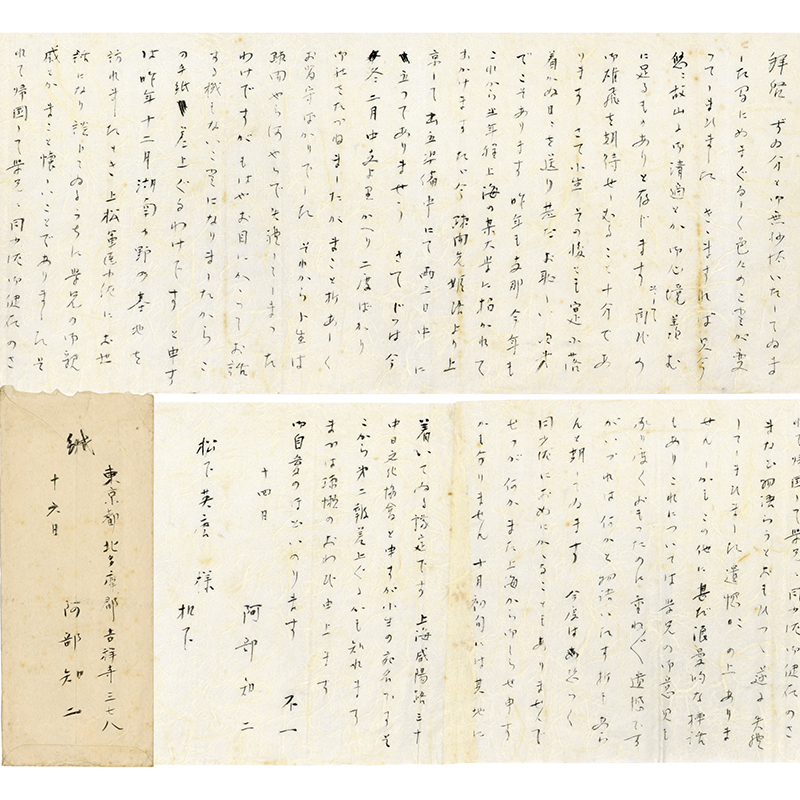 拝啓 ずゐ分と御無沙汰いたしてゐま
した間にめまぐるしく色々のことが変
つてしまひました きこえますれば只今
悠々故山に御清適とか 御心境羨む
に足るものありと存じます そして の
御雄飛を期待せしむること十分であ
ります さて小生 その後とも寔に落
着かぬ日々を送り甚だお恥しい次第
でこそあります 昨年も支那 今年も
これから半年程上海の某大学に招かれて
出かけます たゞ今 より上
京して出立準備中にて両三日中に
立つてありませう さて じつは今
冬二月中支より かへり 二度ばかり
御社をたづねましたが まこと折あしく
お留守ばかりでした それから小生は
やら何やらで失礼してしまつた
わけですが もはやお目にかゝつてお話
する機もないことになりましたから こ
の手紙差上ぐるわけです と申す
は昨年十二月湖南の野の基地を
訪れましたとき 上松軍医中佐にお世
話になり談じてゐるうちに 貴兄の御親
戚とか まこと懐しいことでありました そ
れで帰国して貴兄に同中佐の御健在のさ
れで帰国して貴兄に同中佐の御健在のさ
またお物語らうとおもひつつ遂に失礼
してしまひました 遺憾この上ありま
せん しかもこの他に甚だ浪漫的な挿話
もあり これについては貴兄の御意見も
承り度くおもつたのに重ね〴〵遺憾です
がいづれは何かと物語いたす折もあら
んと期してゐます 今度は
同中佐におめにかゝることもありませんで
せうが何かまた上海から御しらせ申す
かも分りません 十月初旬には其地に
着いてゐる予定です 上海咸陽路三十
中日文化協会と申すが小生の宛名です そ
こから第二報差上ぐるかも知れます
まづは疎懶のおわび申上ます
御自愛の いのり居ます 不一
十四日
阿部知二
松下英麿様
机下
緘
東京都北多摩郡吉祥寺三七八
阿部知二
十六日